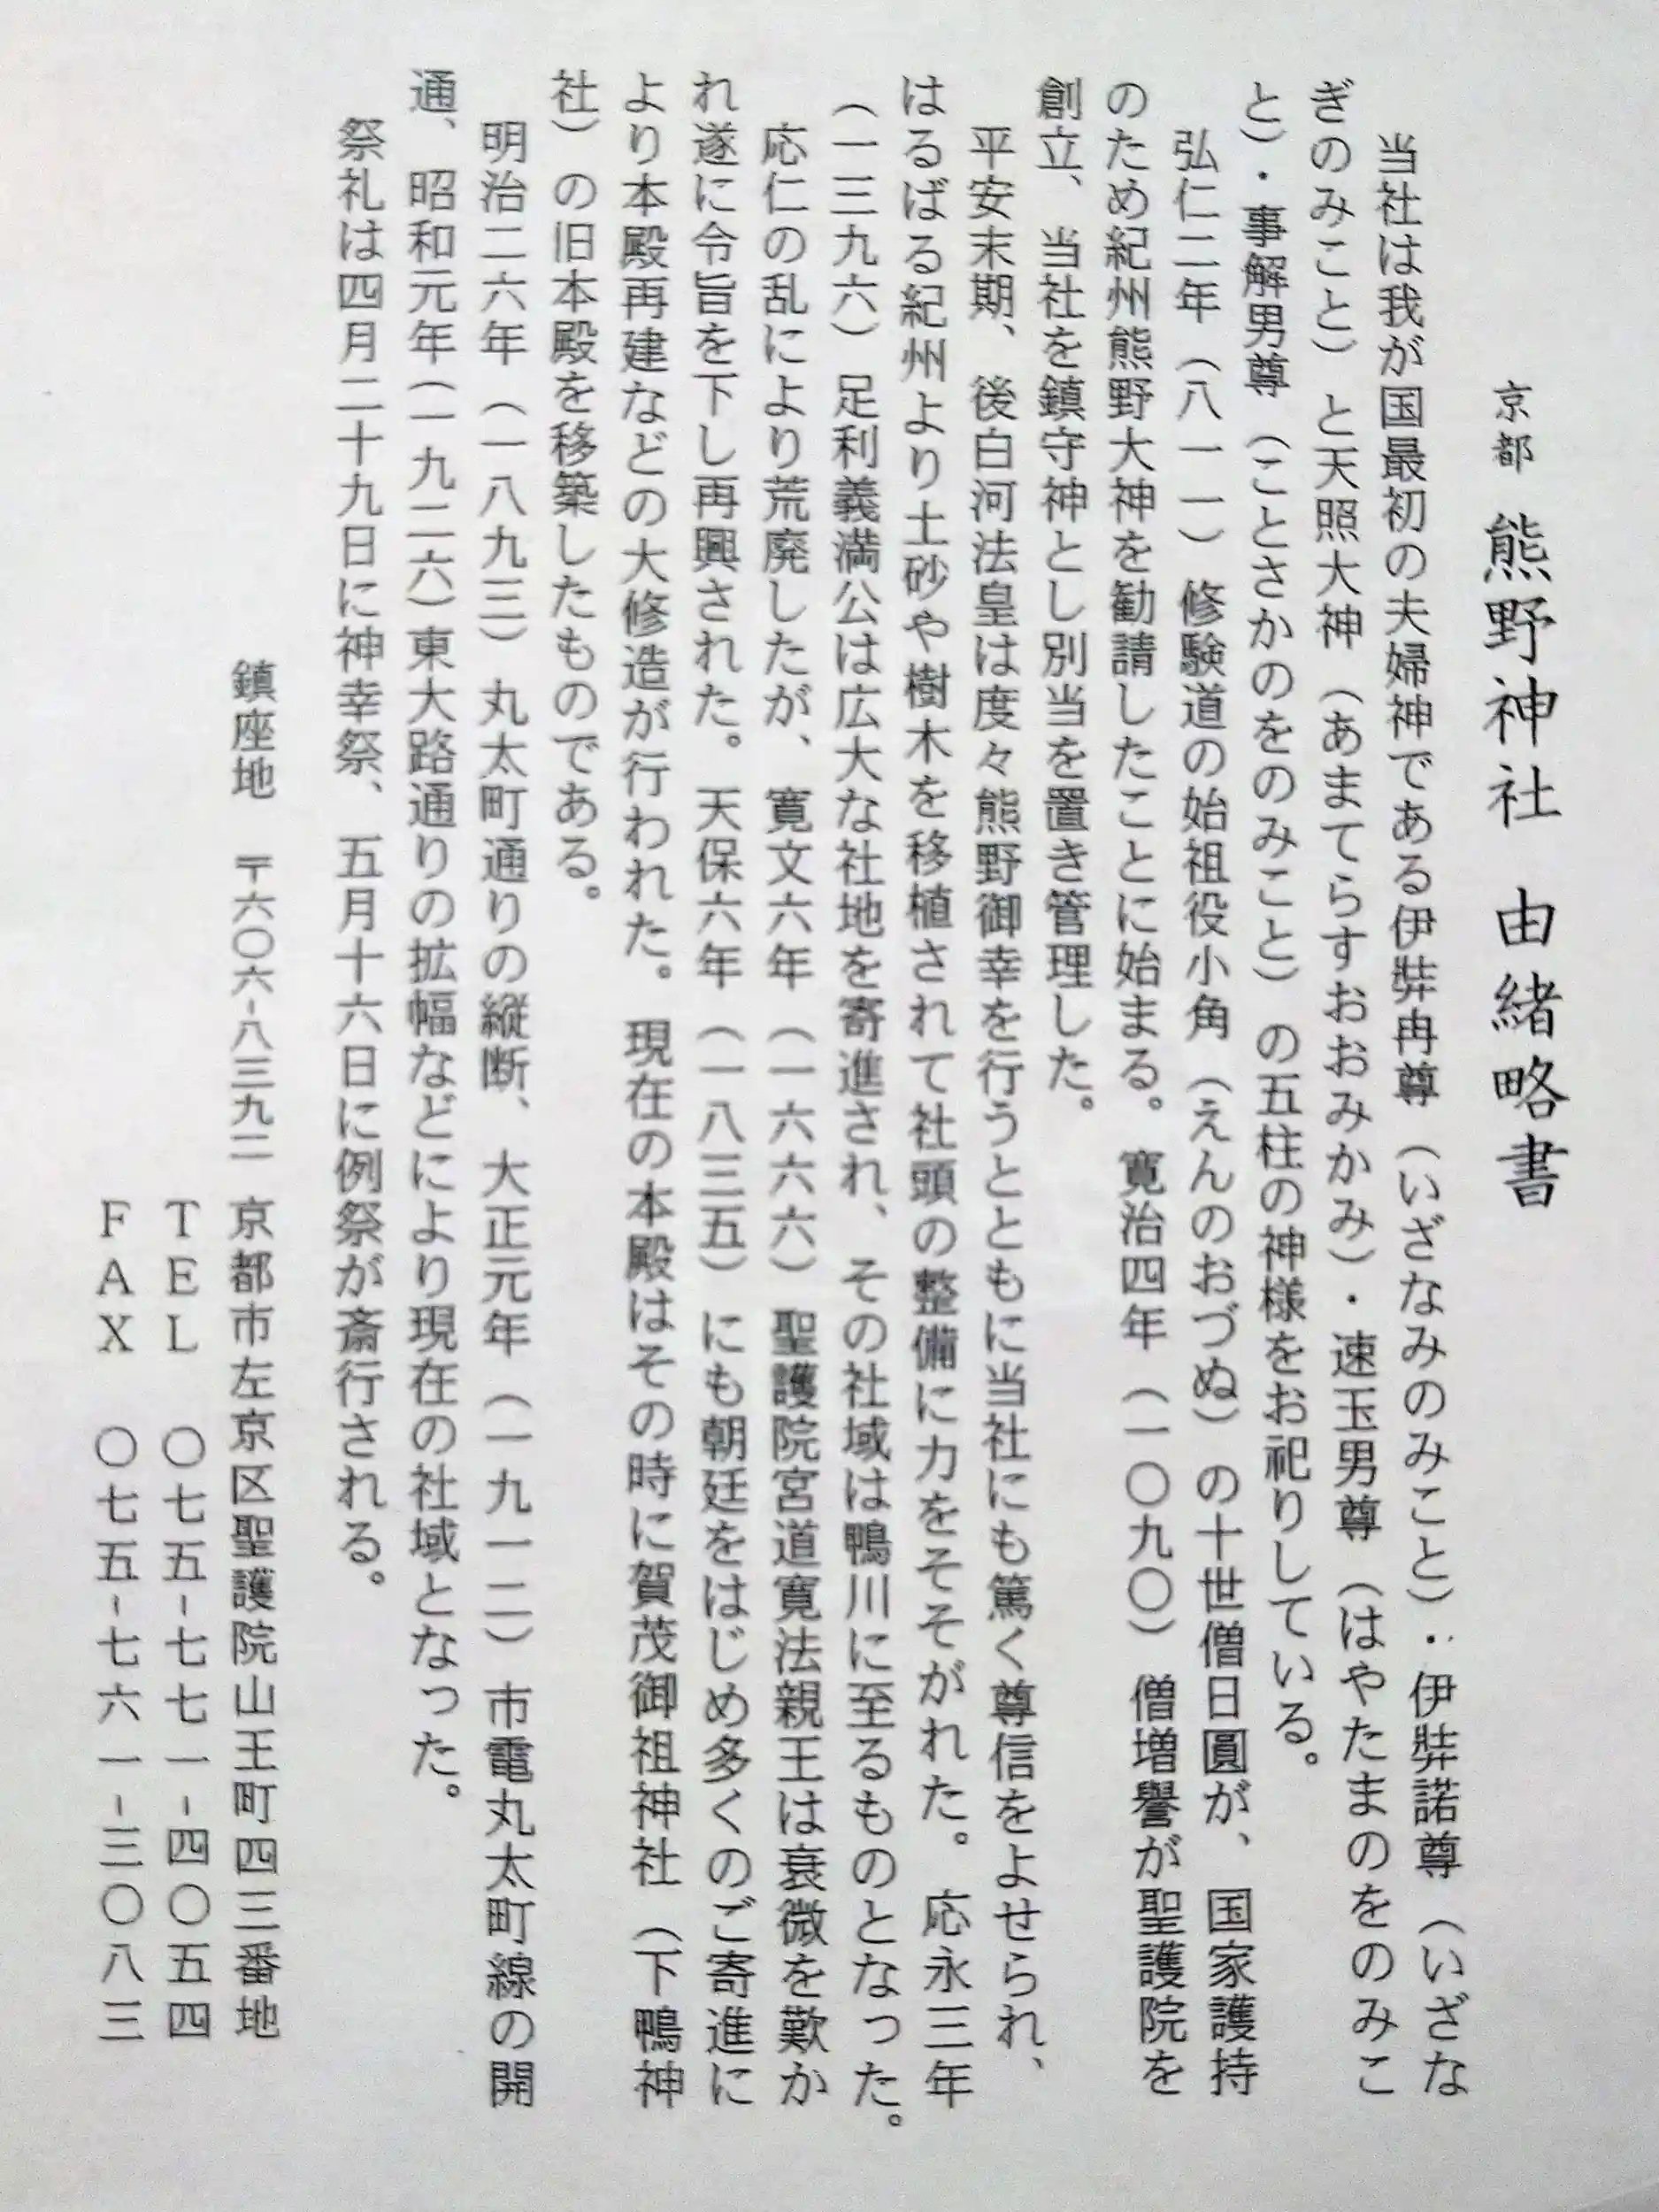 京都 熊野神社 由緒略書
当社は我が国最初の夫婦神である伊弉冉尊（いざなみのみこと）・伊弉諾尊（いざな
ぎのみこと）と天照大神（あまてらすおおみかみ）・速玉男尊（はやたまのをのみこ
と）・事解男尊（ことさかのをのみこと）の五柱の神様をお祀りしている。
弘仁二年（八一一）修験道の始祖役小角（えんのおづぬ）の十世僧日圓が、国家護持
のため紀州熊野大神を勧請したことに始まる。寛治四年（一〇九〇）僧増譽が聖護院を
創立、当社を鎮守神とし別当を置き管理した。
平安末期、後白河法皇は度々熊野御幸を行うとともに当社にも篤く尊信をよせられ、
はるばる紀州より土砂や樹木を移植されて社頭の整備に力をそそがれた。応永三年
（一三九六）足利義満公は広大な社地を寄進され、その社域は鴨川に至るものとなった。
応仁の乱により荒廃したが、寛文六年（一六六六）聖護院宮道寛法親王は衰微を歎か
れ遂に令旨を下し再興された。天保六年（一八三五）にも朝廷をはじめ多くのご寄進に
より本殿再建などの大修造が行われた。現在の本殿はその時に賀茂御祖神社（下鴨神
社）の旧本殿を移築したものである。
明治二六年（一八九三）丸太町通りの縦断、大正元年（一九一二）市電丸太町線の開
通、昭和元年（一九二六）東大路通りの拡幅などにより現在の社域となった。
祭礼は四月二十九日に神幸祭、五月十六日に例祭が斎行される。
鎮座地 〒六〇六-八三九二 京都市左京区聖護院山王町四三番地
TEL 〇七五-七七一-四〇五四
FAX 〇七五-七六一-三〇八三